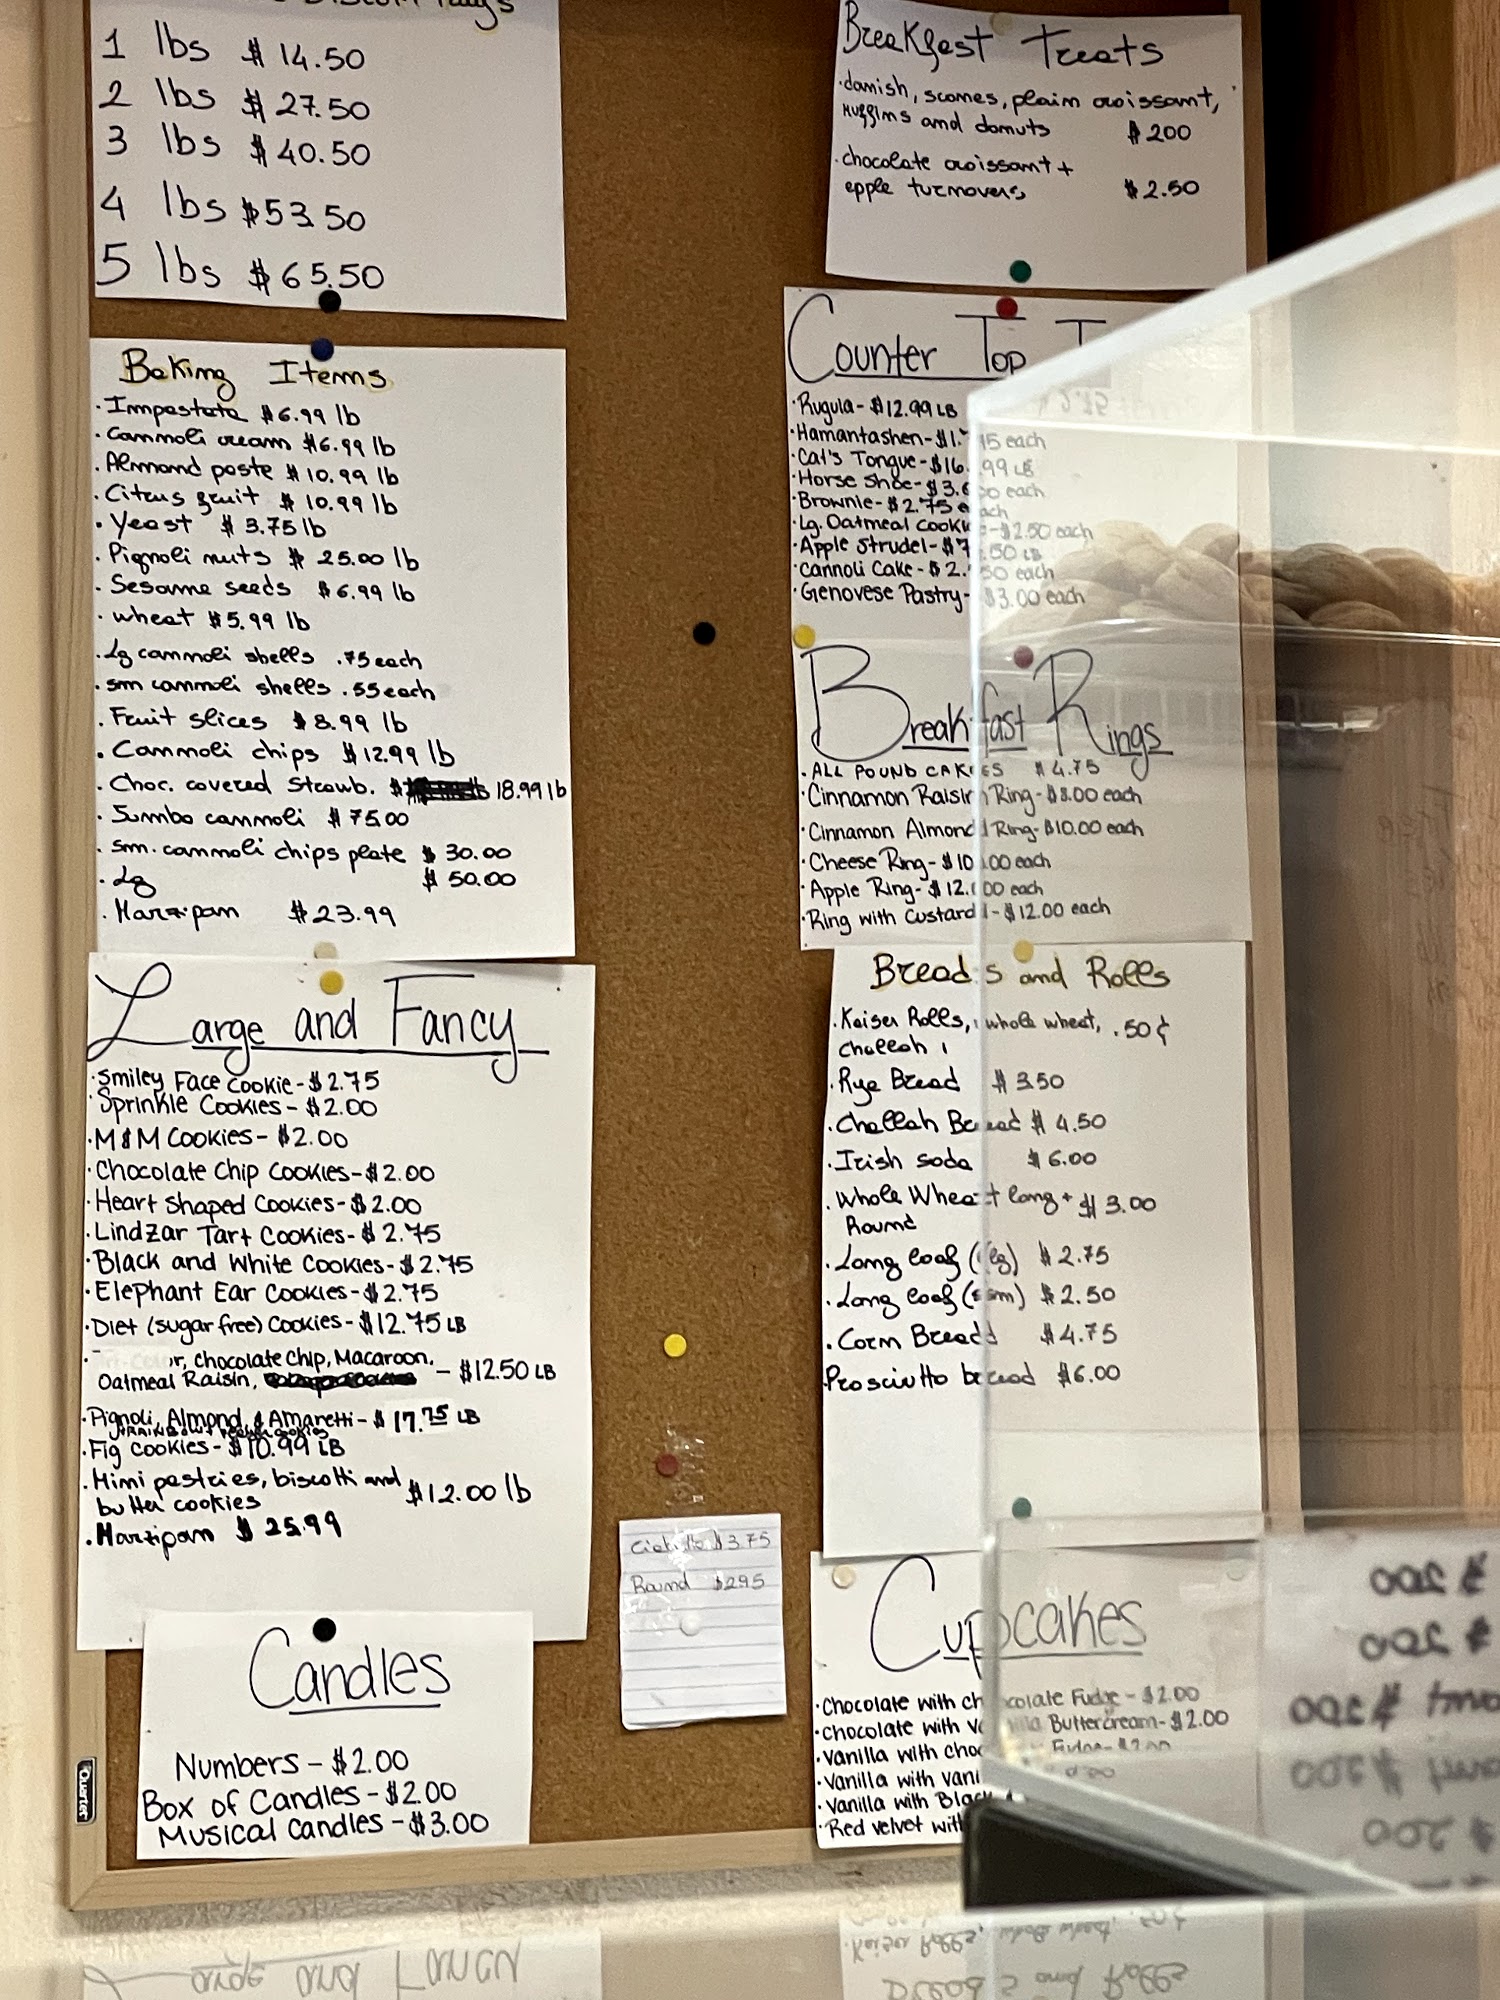 1 lbs $14.50
2 lbs $27.50
3 lbs $40.50
4 lbs $53.50
5 lbs $65.50
Baking Items
· Impastata $6.99 lb
· Cannoli cream $6.99 lb
· Almond paste $10.99 lb
· Citrus fruit $10.99 lb
· Yeast $3.75 lb
· Pignoli nuts $25.00 lb
· Sesame seeds $6.99 lb
· wheat $5.99 lb
· Lg cannoli shells .75 each
· sm cannoli shells .55 each
· Fruit slices $8.99 lb
· Cannoli chips $12.99 lb
· Choc. covered Strawb. $ 18.99 lb
· Jumbo cannoli $75.00
· sm. cannoli chips plate $30.00
· Lg $50.00
· Marzipan $23.99
Large and Fancy
· Smiley Face Cookie - $2.75
· Sprinkle Cookies - $2.00
· M&M Cookies - $2.00
· Chocolate Chip Cookies - $2.00
· Heart Shaped Cookies - $2.00
· Lindzar Tart Cookies - $2.75
· Black and White Cookies - $2.75
· Elephant Ear Cookies - $2.75
· Diet (sugar free) Cookies - $12.75 LB
· Chocolate Chip, Macaroon,
Oatmeal Raisin, - $12.50 LB
· Pignoli, Almond, & Amaretti - $17.75 LB
· Fig cookies - $10.99 LB
· Mini pastries, biscotti and
butter cookies $12.00 lb
· Marzipan $25.99
Candles
Numbers - $2.00
Box of Candles - $2.00
Musical Candles - $3.00
Quartet
$3.75
Round $2.95
Breakfest Treats
· danish, scones, plain croissant,
muffins and donuts $2.00
· chocolate croissant +
apple turnovers $2.50
Counter Top
· Rugula - $12.99 LB
· Hamantashen - $1.75 each
· Cat's Tongue - $16.99 LB
· Horse Shoe - $3.00 each
· Brownie - $2.75 each
· Lg. Oatmeal Cookie - $2.50 each
· Apple Strudel - $7.50 LB
· Cannoli Cake - $2.50 each
· Genovese Pastry - $3.00 each
Breakfast Rings
· ALL POUND CAKES $4.75
· Cinnamon Raisin Ring - $8.00 each
· Cinnamon Almond Ring - $10.00 each
· Cheese Ring - $10.00 each
· Apple Ring - $12.00 each
· Ring with Custard - $12.00 each
Breads and Rolls
· Kaiser Rolls, whole wheat, .50¢
challah
· Rye Bread $3.50
· Challah Bread $4.50
· Irish soda $6.00
· Whole Wheat long + $3.00
Round
· Long loaf (lg) $2.75
· Long loaf (sm) $2.50
· Corn Bread $4.75
Prosciutto bread $6.00
Cupcakes
· Chocolate with chocolate Fudge - $2.00
· Chocolate with Vanilla Buttercream - $2.00
· Vanilla with choc Fudge - $2.00
· Vanilla with Vani
· Vanilla with Black
· Red velvet with